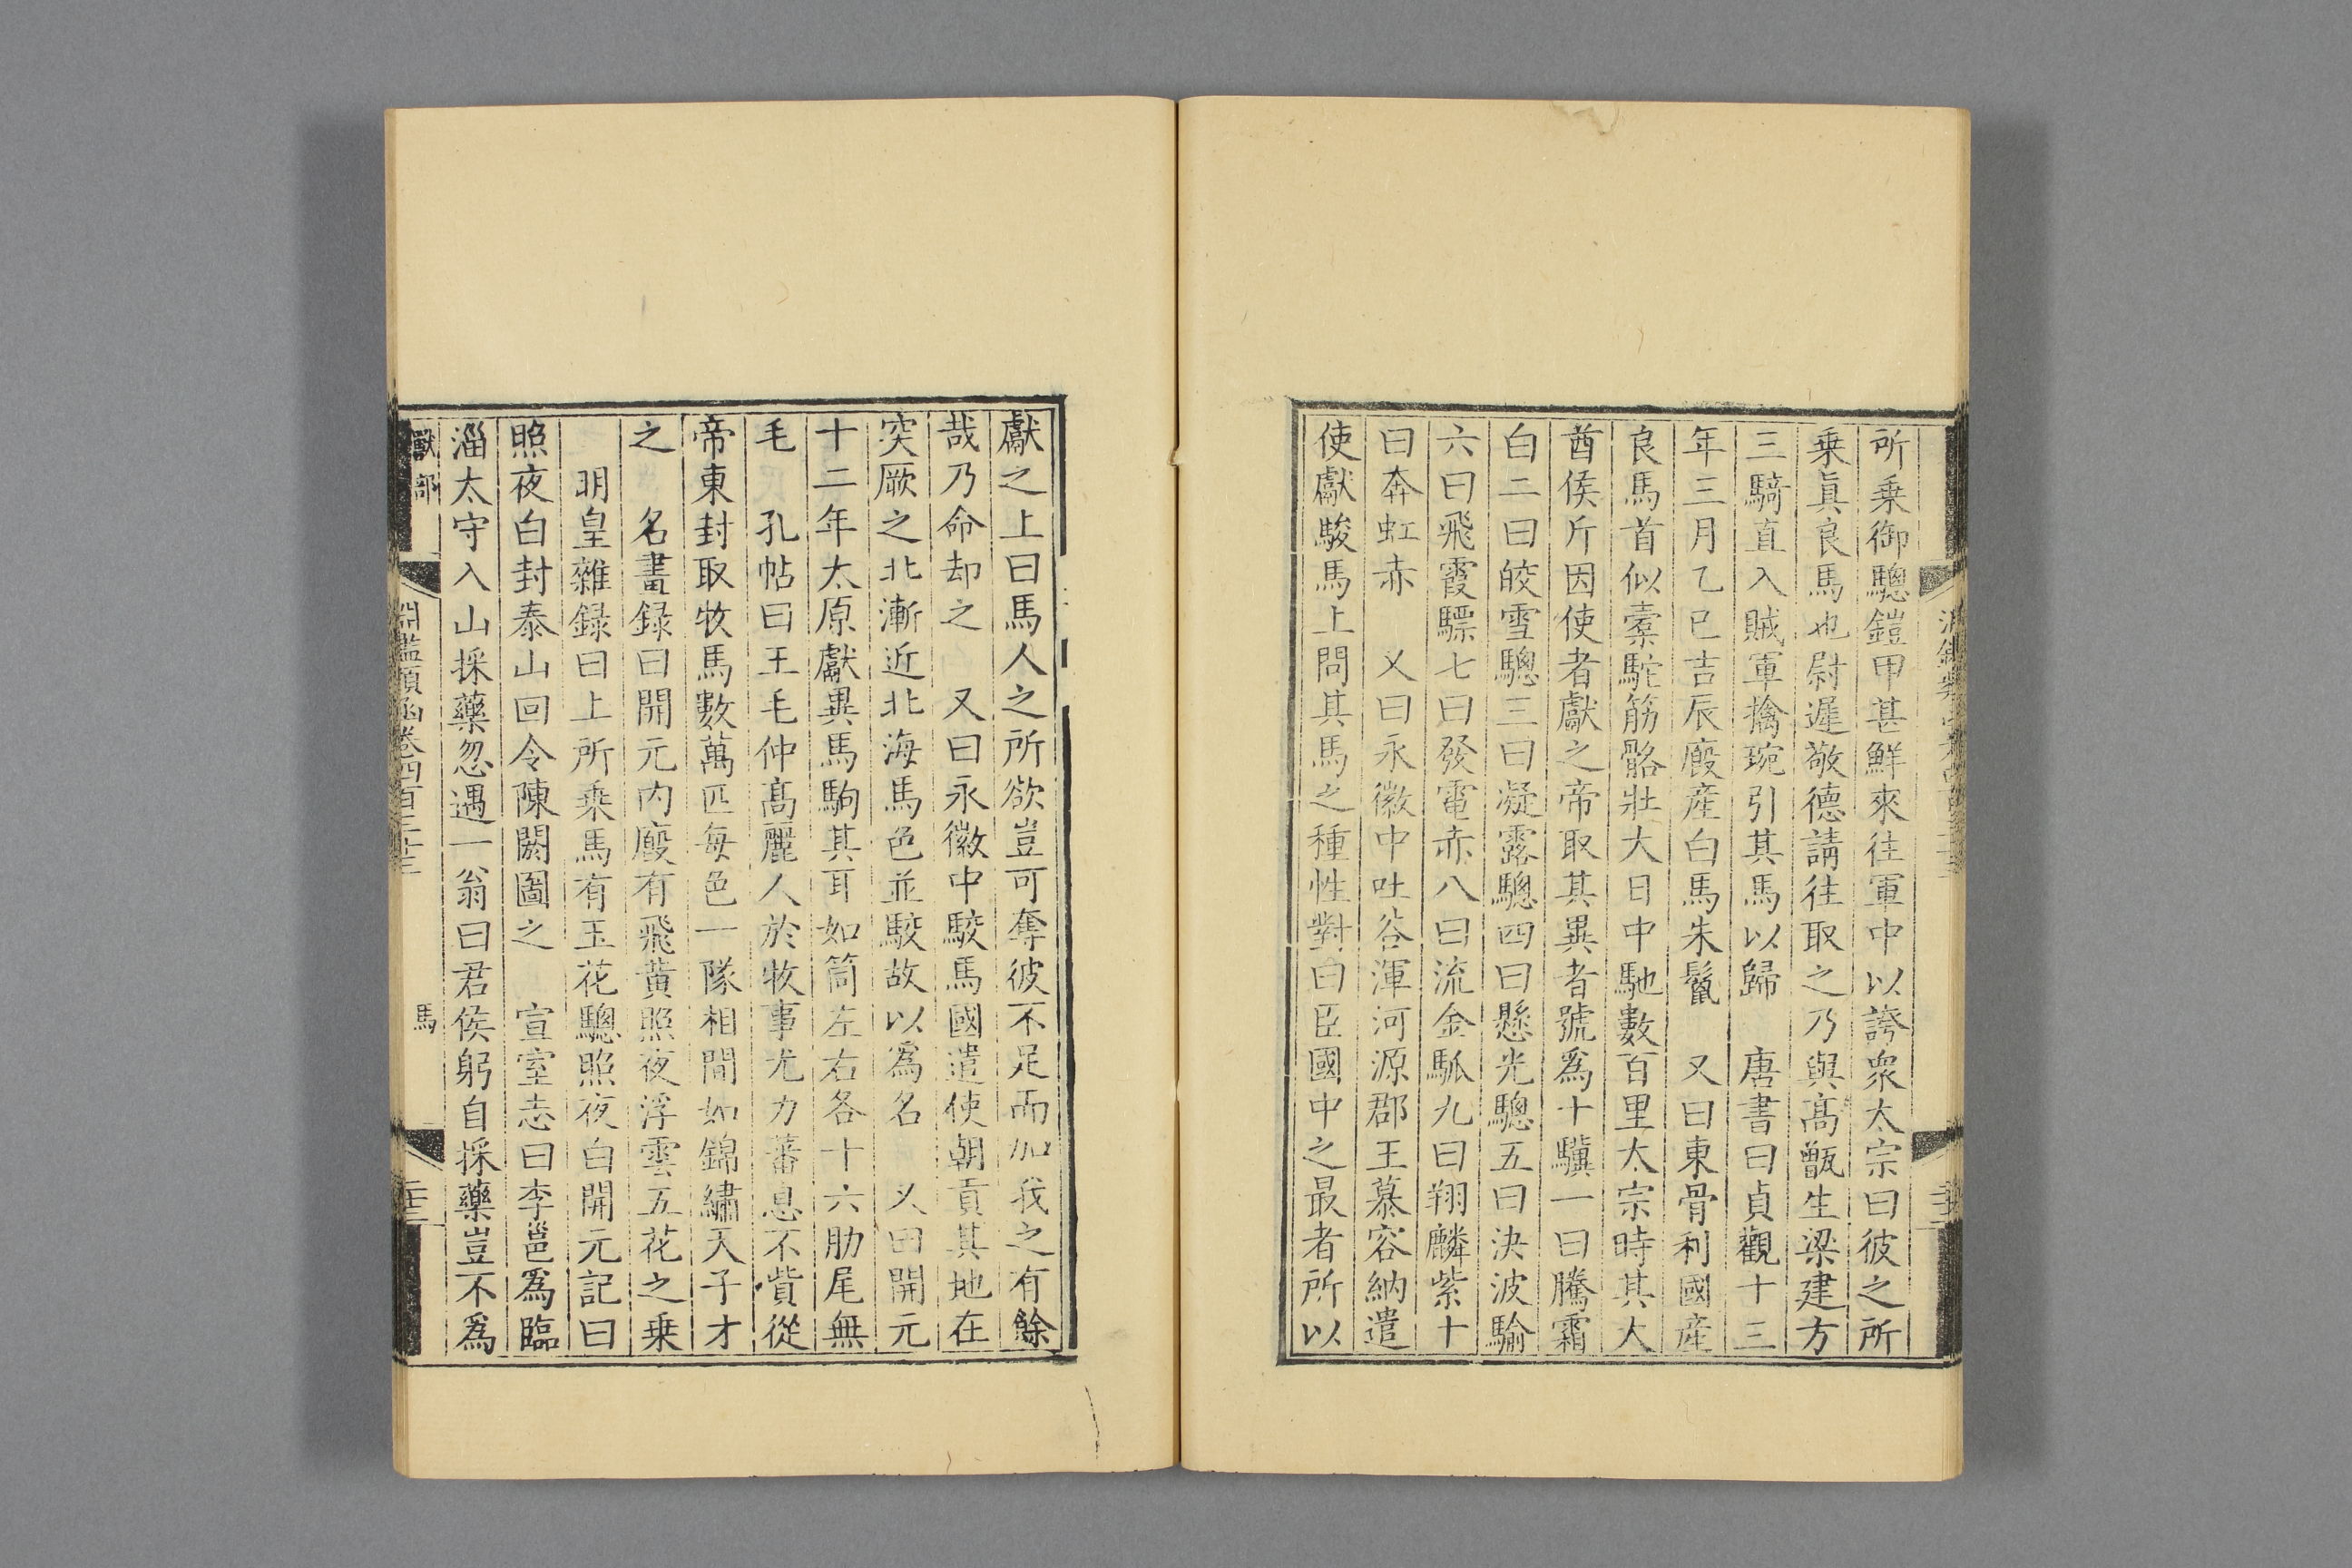 所乗御驄鎧甲甚鮮來往軍中以誇衆太宗曰彼之所
乗眞良馬也尉遲敬德請往取之乃與髙甑生梁建方
三騎直入賊軍擒琬引其馬以歸　唐書曰貞觀十三
年三月乙巳吉辰廄産白馬朱鬛　又曰東骨利國産
良馬首似橐駝筋骼壯大日中馳數百里太宗時其大
酋俟斤因使者獻之帝取其異者號爲十驥一曰騰霜
白二曰皎雪驄三曰凝露驄四曰懸光驄五曰決波騟
六曰飛霞驃七曰發電赤八曰流金䯄九曰翔麟紫十
曰奔虹赤　又曰永徽中吐谷渾河源郡王慕容納遣
使獻駿馬上問其馬之種性對曰臣國中之最者所以
獻之上曰馬人之所欲豈可奪彼不足而加我之有餘
哉乃命却之　又曰永徽中駮馬國遣使朝貢其地在
突厥之北漸近北海馬色並駮故以爲名　又曰開元
十二年太原獻異馬駒其耳如筒左右各十六肋尾無
毛　孔帖曰王毛仲髙麗人於牧事尤力蕃息不貲從
帝東封取牧馬數萬匹每色一隊相間如錦繡天子才
之　名畫録曰開元内廄有飛黄照夜浮雲五花之乗
明皇雜録曰上所乗馬有玉花驄照夜白開元記曰
照夜白封泰山回令陳閎圖之　宣室志曰李邕爲臨
淄太守入山採藥忽遇一翁曰君侯躬自採藥豈不爲
獸部
淵鑑類函卷四百三十三
馬